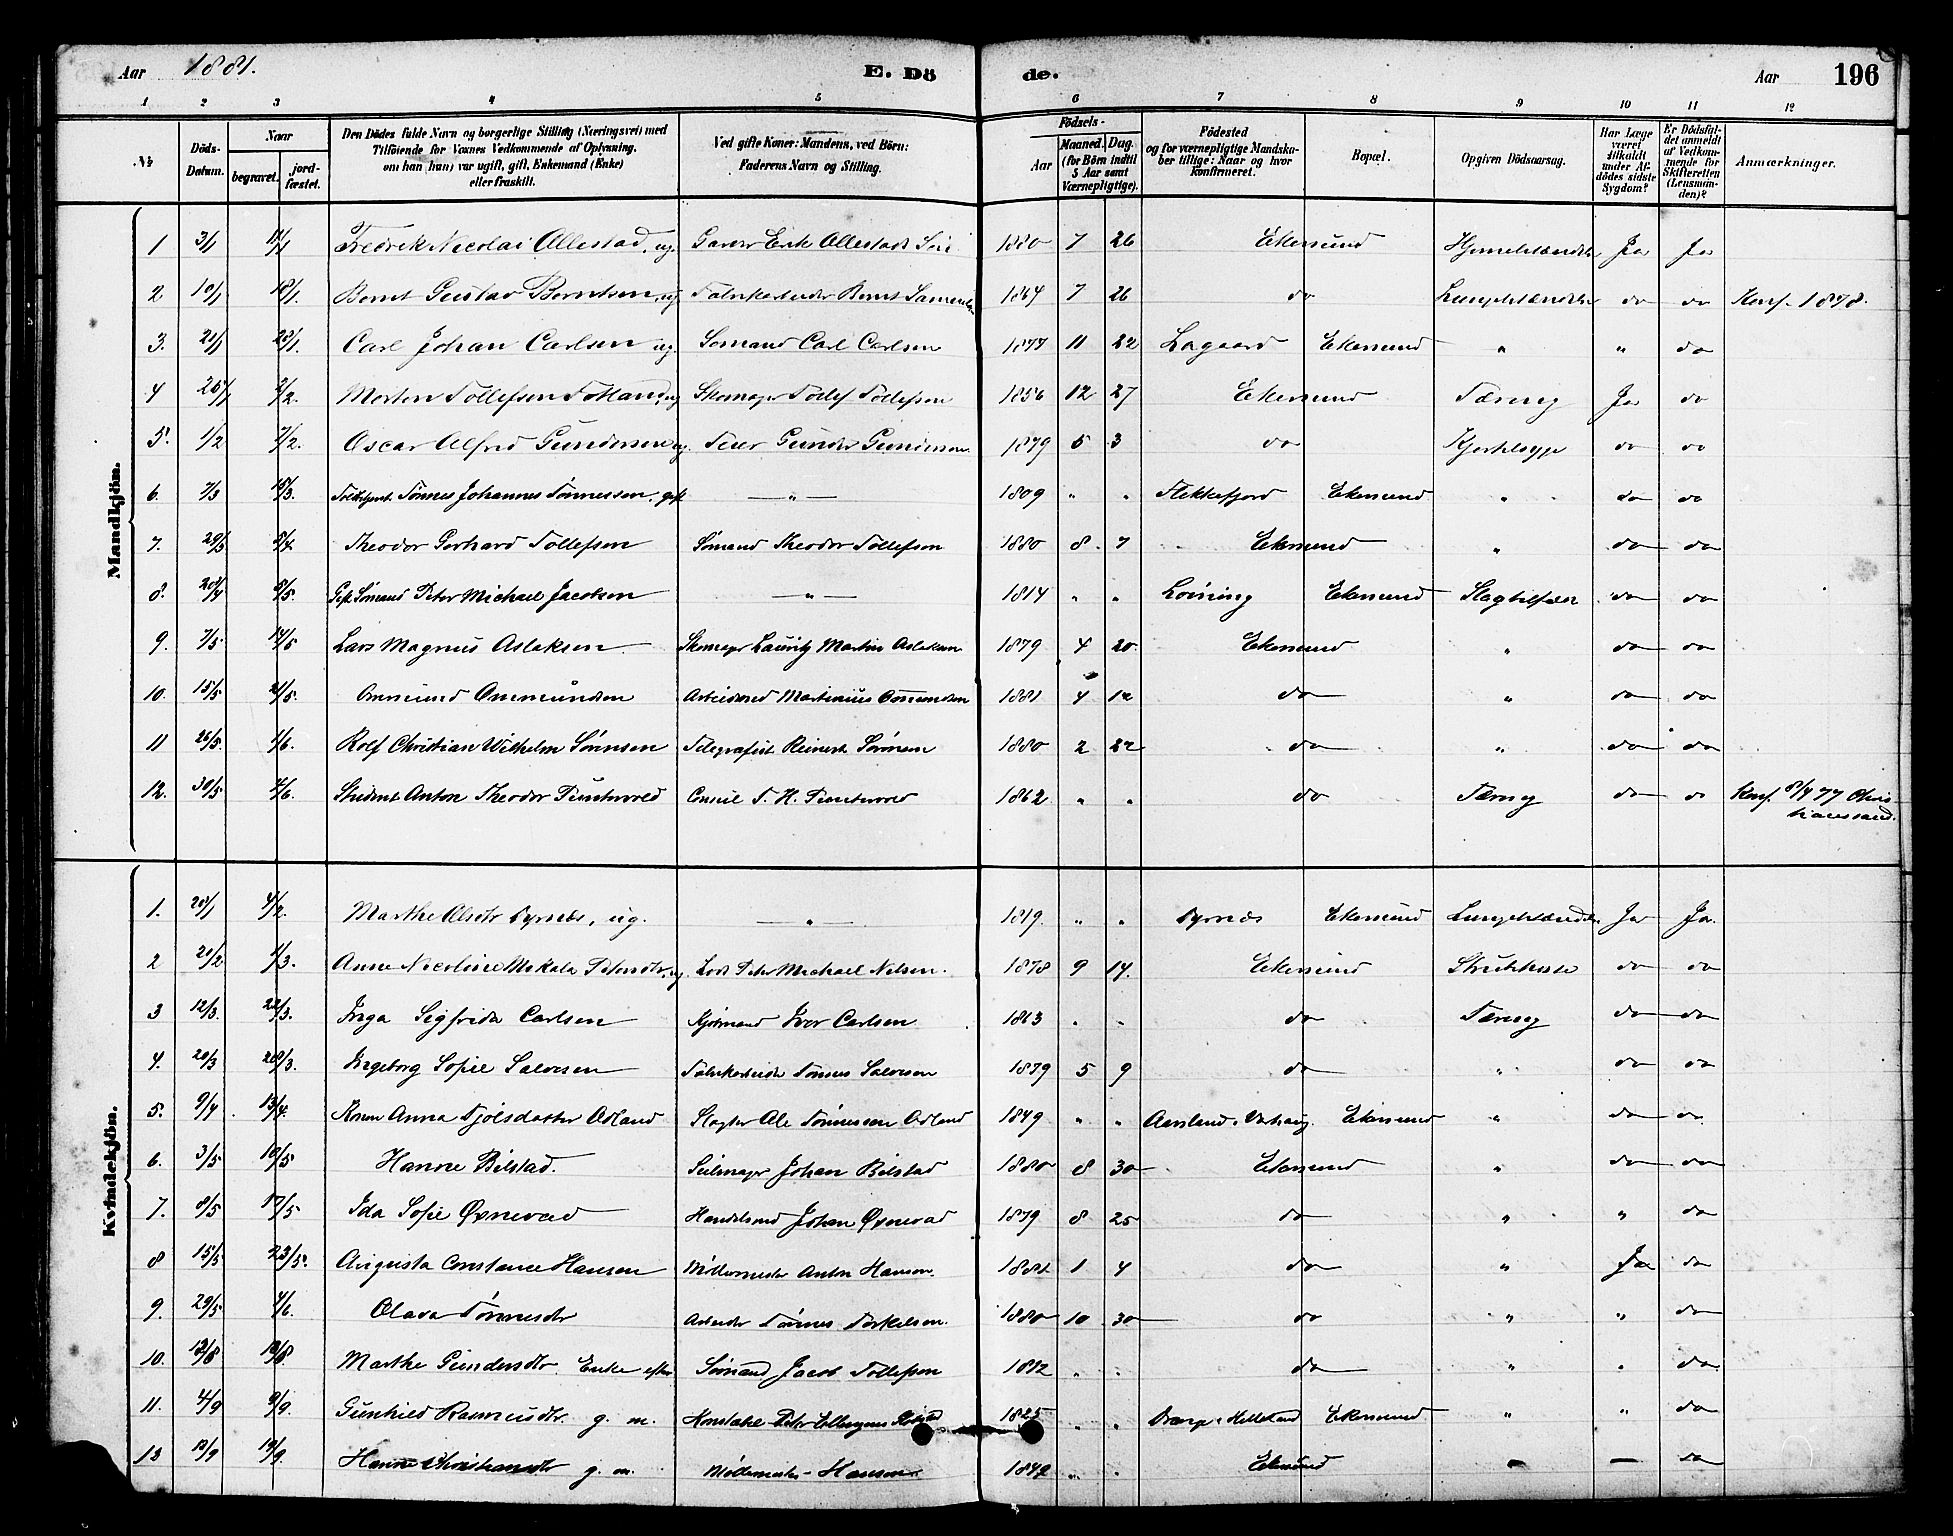 Aar 1881. E. Dö de. Aar 196
1 2 3 4 5 6 7 8 9 10 11 12
№ Döds-Datum. Naar begravet. jordfæstet. Den Dödes fulde Navn og borgerlige Stilling (Næringsvei) med Tilföiende for Voxnes Vedkommende af Oplysning, om han (hun) var ugift, gift, Enkemand (Enke) eller fraskilt. Ved gifte Koner: Mandens, ved Börn: Faderens Navn og Stilling. Födsels- Aar Maaned. Dag. (for Börn indtil 5 Aar samt Værnepligtige). Födested og for værnepligtige Mandskaber tillige: Naar og hvor konfirmeret. Bopæl. Opgiven Dödsaarsag. Har Læge været tilkaldt under Afdödes sidste Sygdom? Er Dödsfaldet anmeldt af Vedkommende for Skifteretten (Lensmanden)? Anmærkninger.
Mandkjön.
1 3/1 11/1 Fredrik Nicolai Ollestad, ug. Garver Erik Ollestads 1880 7 26 Ekersund Ja Ja
2 10/1 18/1 Bernt Gustav Berntsen, ug. Fabrikarbeider Bernt 1864 7 26 do do do Konf. 1878.
3. 21/1 28/1. Carl Johan Carlsen ug. Sømand Carl Carlsen 1877 11 22 Lagaard Ekersund " " do
4 26/1 2/2. Morten Tollefsen ug Skomager Tollef Tollefsen 1856 12 27 Ekersund Tæring Ja do
5. 1/2 7/2. Oscar Alfred Gundersen ug. Gunder Gundersen 1879 5 3 do do do
6. 7/3 15/3. Tønnes Johannes Tønnessen, gift — " — 1809 " " Flekkefjord Ekersund " do do
7. 29/3 5/4. Theodor Gerhard Tollefsen Sømand Theodor Tollefsen 1880 8 7 Ekersund " do do
8. 28/4 5/5. Gift Sømand Peter Michael Jacobsen — " — 1814 " " Ekersund Slagtilfælde do do
9. 7/5 14/5 Lars Magnus Aslaksen Skomager Lauritz Martin Aslaksen 1879 4 20 Ekersund " do do
10. 15/5 21/5. Ommund Ommundsen Arbeidsmd Martinius Ommundsen 1881 4 12 do " do do
11 26/5. 1/6. Rolf Christian Wilhelm Sørensen Telegrafist Reinert Sørensen 1880 2 22 do " do do
12. 30/5 4/6. Student Anton Theodor Puntervold Consul T. H. Puntervold 1862 " " do Tæring do do Konf. 8/4 77 Christianssand.
Kvindekjön.
1. 28/1 4/2. Marthe Olsdtr , ug. — " — 1819. " " Ekersund Ja Ja.
2 20/2 1/3. Anne Nicoline Mikala Petersdtr, ug Lods Peter Michael Nelsen. 1878 9 14. Ekersund Strubehoste do do
3 12/3. 22/3. Inga Sigfride Carlsen Iver Carlsen 1863 " " do Tæring do do
4. 20/3 28/3. Ingeborg Sofie Salvesen Fabrikarbeider Tønnes Salvesen 1879 5 9 do " do do
5. 9/4. 13/4. Konen Anna Tjølsdatter Odland Slagter Ole Tønnessen Odland 1849 " " Varhaug. Ekersund " do do
6. 3/5 10/5 Hanne Bilstad. Seilmager Johan Bilstad 1880 8 30 Ekersund " do do
7. 8/5 17/5. Ida Sofie Øxnevad Handelsmd Johan Øxnevad 1879 8 25 do " " do
8 15/5 23/5. Augusta Constance Hansen Møllermester Anton Hansen. 1881 1 4 do " Ja do
9. 29/5 4/6. Olava Tønnesdtr Arbeider Tønnes Torkelsen. 1880 10 30 do " " do
10. 12/8 18/8. Marthe Gundersdtr. Enke efter Sømand Jacob Tollefsen 1812 " " do " " do
11. 4/9 9/9. Gunhild Rasmusdtr. g. m. Peter 1825 " " Helleland Ekersund " " do
13 12/9 19/9. Hanne Christiansdtr g. m. Hansen 184 " " Ekersund " — do